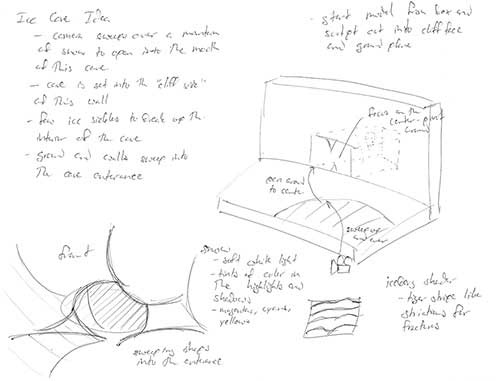 Ice Cave Idea
- camera sweeps over a mountain
of snow to open into the mouth
of this cave
- cave is set into the "cliff side"
of this wall
- few ice sickles to break up the
interior of the cave
- ground and walls sweep into
the cave enterance
- start model from box and
sculpt out into cliff face
and ground plane
focus on the
center-pivot
around
pan around
to center
sweep up
and over
front
snow
- soft white light
- tints of color in
the highlights and
shadows
- magentas, cyans,
yellows
sweeping shapes
into the enterance
iceberg shader
- tiger stripe like
striations for
fractures